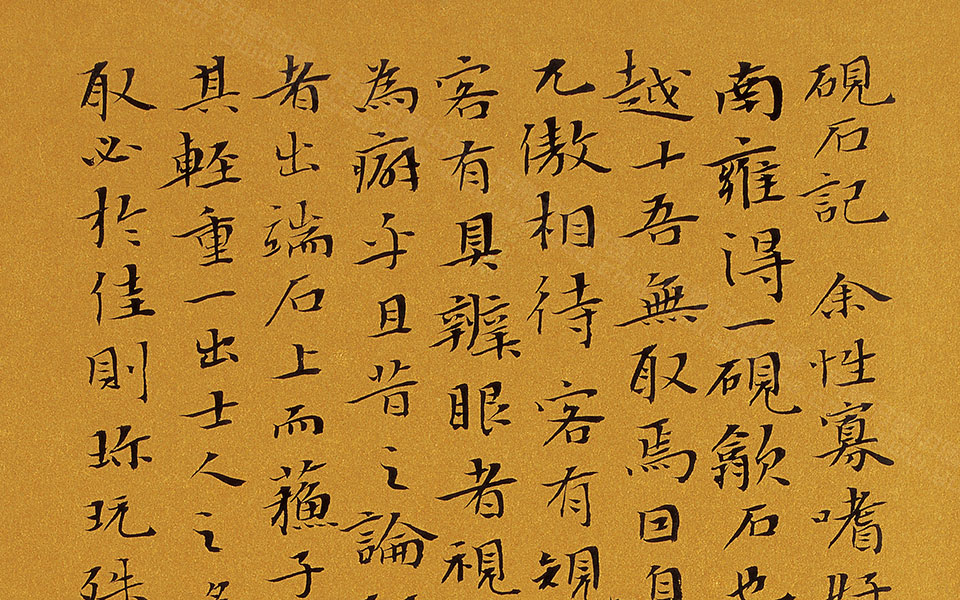 硯石記 余性寡嗜好
南雍得一硯歙石也
越十吾無取焉因自
尤傲相待 客有規
客有具辨眼者視
為癖乎且昔之論
者出端石上而蘓子
其輕重一出士人之名
取必於佳則珎玩殊